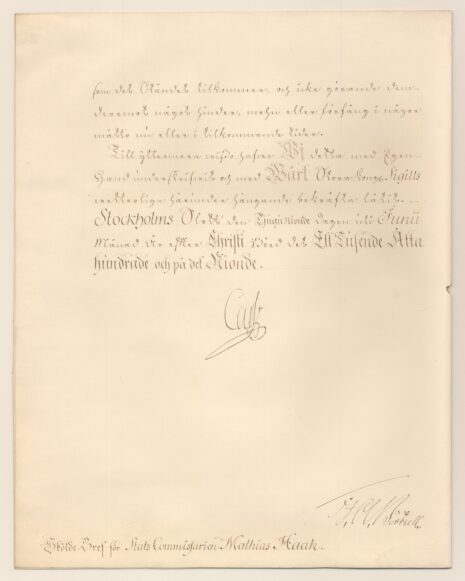 som det Ståndet tilkommer, och icke görande dem
deremot något hinder, mehn eller förfång i någor
måtto nu eller i tilkommande tider.
Till yttermera visso hafve Wj detta med Egen
Hand underskrifvit och med Wårt Stora Kongl. Sigills
wetterliga härunder hängande bekräfta låtit.
Stockholms Slott den Tjugu Nionde dagen uti Junii
Månad År efter Christi Börd det Ett Tusende Åtta
hundrade och på det Nionde.
Carl
Skölde-Bref för Stats Commissarien Mathias Haak.